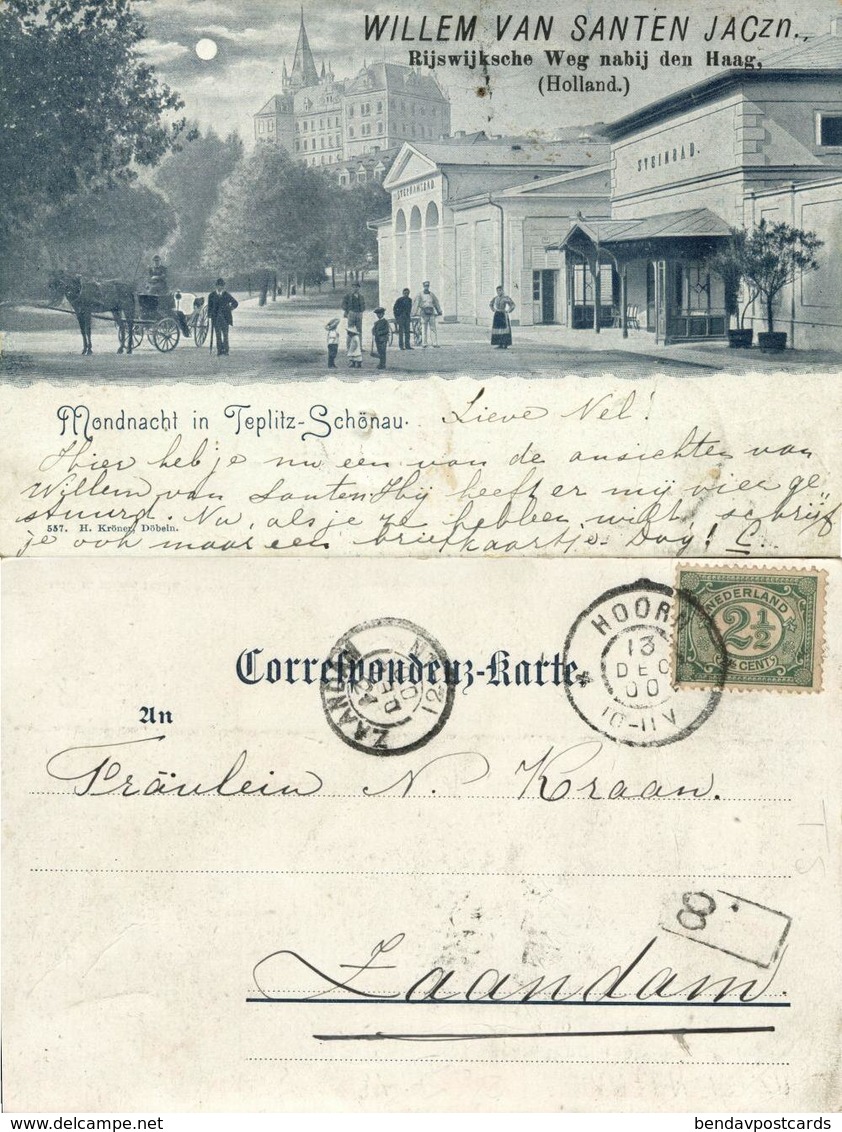 WILLEM VAN SANTEN JACzn.,
Rijswijksche Weg nabij den Haag,
(Holland.)
STEPHANSBAD
STEINBAD.
Mondnacht in Teplitz-Schönau.
Lieve Nel!
Hier heb je nu een van de ansichten van
Willem van Santen. Hij heeft er mij vier ge
stuurd. Nu, als je ze hebben wilt, schrijf
557. H. Kröner, Döbeln.
je ook maar een briefkaartje. Dag! C.
Correspondenz-Karte.
An
ZAANDAM
DEC
00
12
HOORN
13
DEC
00
10-11V
NEDERLAND
2½
CENT
Fräulein N. Kraan.
8
TS
Zaandam.
delcampe.net
bendavpostcards